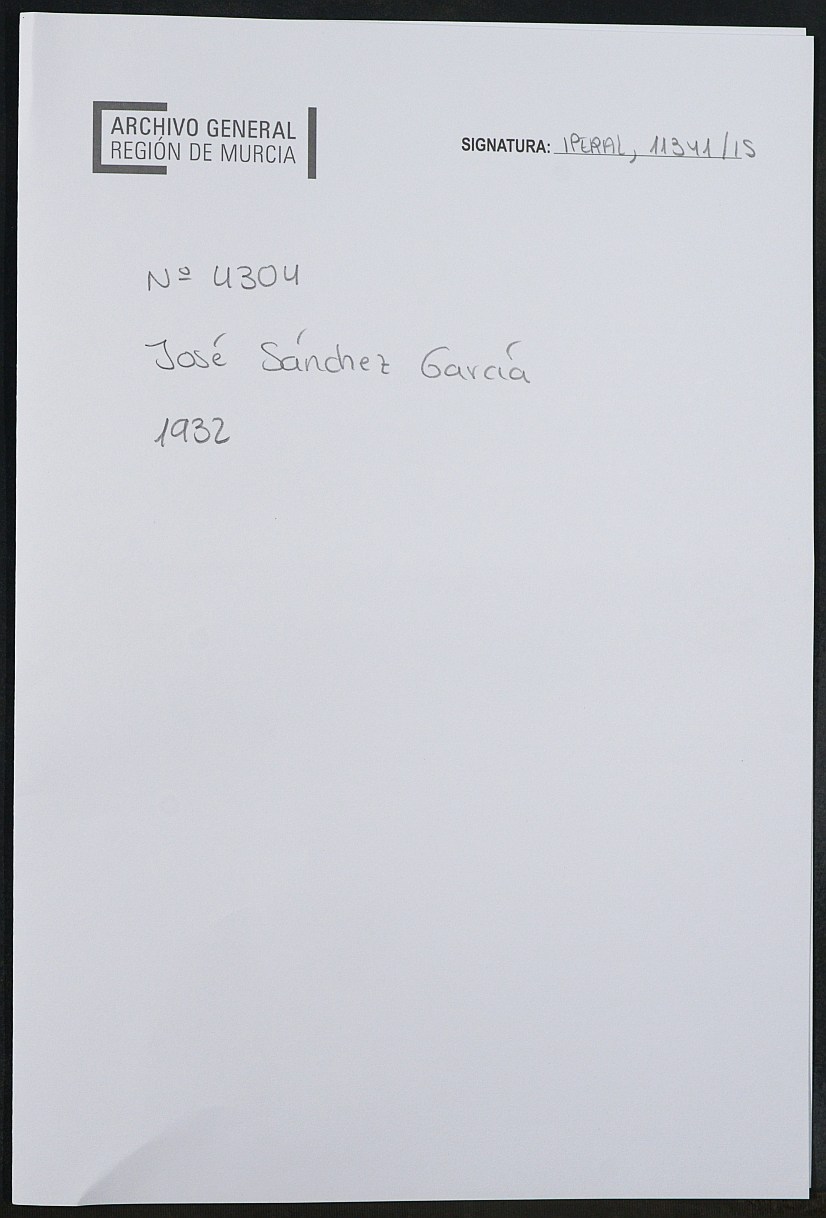 ARCHIVO GENERAL
REGIÓN DE MURCIA
SIGNATURA: IPERAL, 11341/15
Nº 4304
José Sánchez García
1932